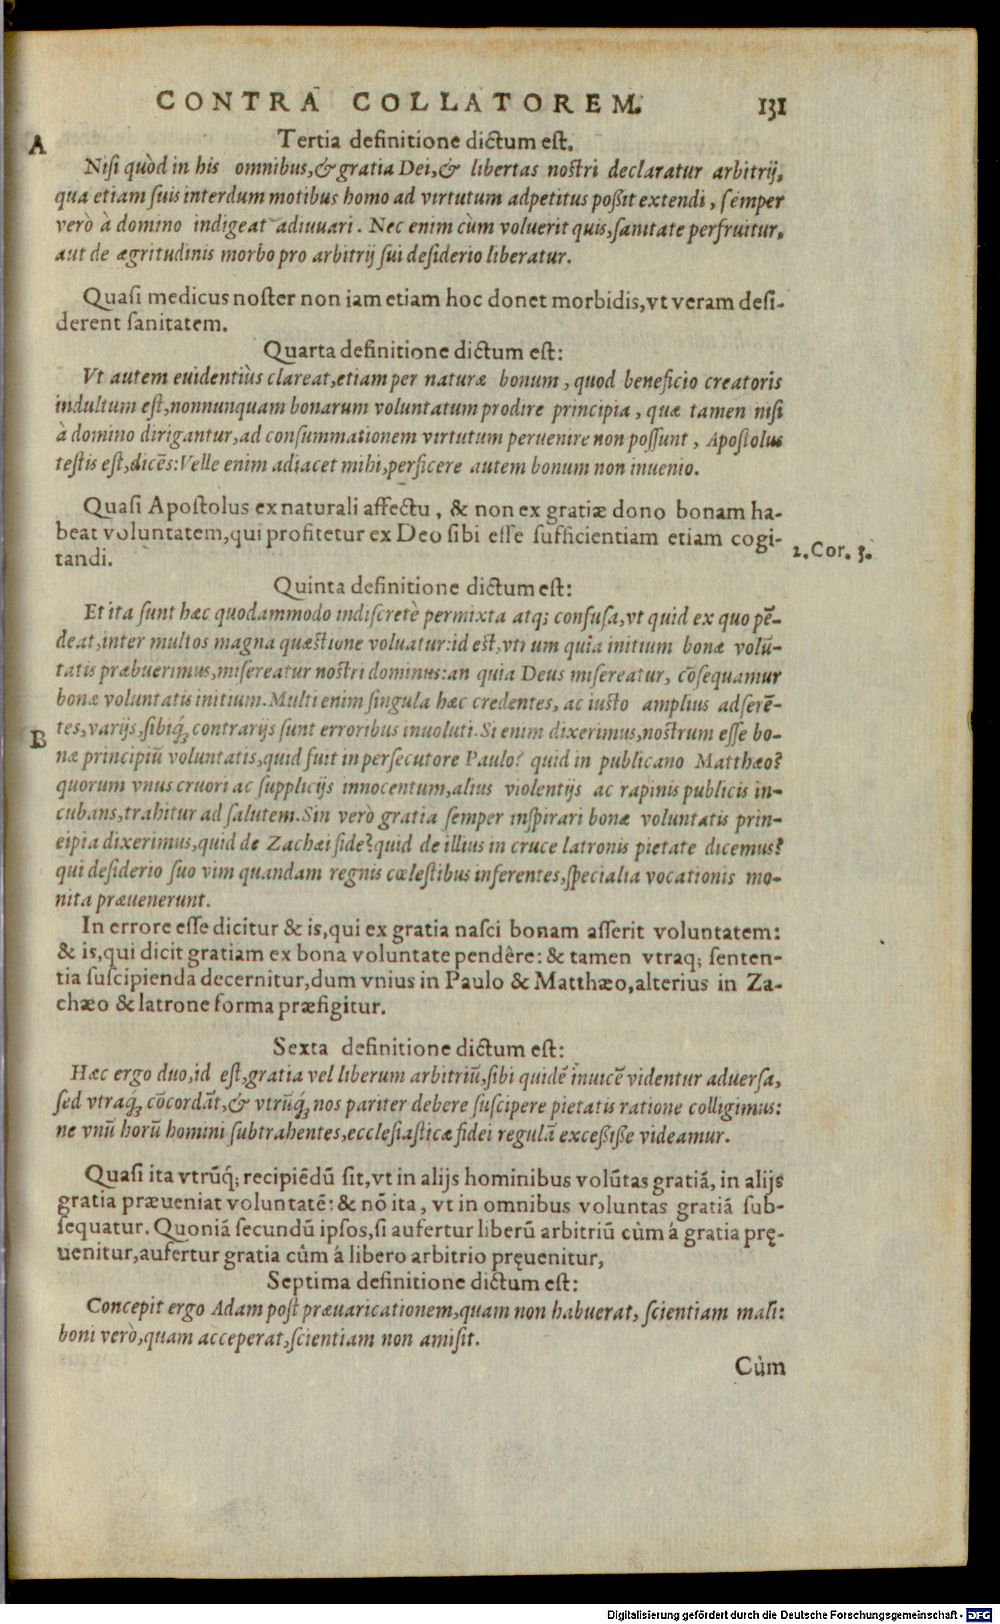 CONTRA COLLATOREM. 131
A
Tertia definitione dictum est.
Nisi quòd in his omnibus, & gratia Dei, & libertas nostri declaratur arbitrij,
qua etiam suis interdum motibus homo ad virtutum adpetitus poßit extendi, semper
verò à domino indigeat adiuuari. Nec enim cùm voluerit quis, sanitate perfruitur,
aut de ægritudinis morbo pro arbitrij sui desiderio liberatur.
Quasi medicus noster non iam etiam hoc donet morbidis, vt veram desi-
derent sanitatem.
Quarta definitione dictum est:
Vt autem euidentiùs clareat, etiam per naturæ bonum, quod beneficio creatoris
indultum est, nonnunquam bonarum voluntatum prodire principia, quæ tamen nisi
à domino dirigantur, ad consummationem virtutum peruenire non possunt, Apostolus
testis est, dicẽs: Velle enim adiacet mihi, perficere autem bonum non inuenio.
Quasi Apostolus ex naturali affectu, & non ex gratiæ dono bonam ha-
beat voluntatem, qui profitetur ex Deo sibi esse sufficientiam etiam cogi-
tandi.
2. Cor. 3.
Quinta definitione dictum est:
Et ita sunt hæc quodammodo indiscretè permixta atq; confusa, vt quid ex quo pẽ-
deat, inter multos magna quæstione voluatur: id est, vtrum quia initium bonæ volũ-
tatis præbuerimus, misereatur nostri dominus: an quia Deus misereatur, cõsequamur
bonæ voluntatis initium. Multi enim singula hæc credentes, ac iusto amplius adserẽ-
B
tes, varijs, sibiq́; contrarijs sunt erroribus inuoluti. Si enim dixerimus, nostrum esse bo-
næ principiũ voluntatis, quid fuit in persecutore Paulo? quid in publicano Matthæo?
quorum vnus cruori ac supplicijs innocentum, alius violentijs ac rapinis publicis in-
cubans, trahitur ad salutem. Sin verò gratia semper inspirari bonæ voluntatis prin-
eipia dixerimus, quid de Zachæi fide? quid de illius in cruce latronis pietate dicemus?
qui desiderio suo vim quandam regnis cælestibus inferentes, specialia vocationis mo-
nita præuenerunt.
In errore esse dicitur & is, qui ex gratia nasci bonam asserit voluntatem:
& is, qui dicit gratiam ex bona voluntate pendêre: & tamen vtraq; senten-
tia suscipienda decernitur, dum vnius in Paulo & Matthæo, alterius in Za-
chæo & latrone forma præfigitur.
Sexta definitione dictum est:
Hæc ergo duo, id est, gratia vel liberum arbitriũ, sibi quidẽ inuicẽ videntur aduersa,
sed vtraq́; cõcordãt, & vtrũq́; nos pariter debere suscipere pietatis ratione colligimus:
ne vnũ horũ homini subtrahentes, ecclesiasticæ fidei regulã exceßiße videamur.
Quasi ita vtrũq́; recipiẽdũ sit, vt in alijs hominibus volũtas gratiã, in alijs
gratia præueniat voluntatẽ: & nõ ita, vt in omnibus voluntas gratiã sub-
sequatur. Quoniã secundũ ipsos, si aufertur liberũ arbitriũ cùm á gratia prę-
uenitur, aufertur gratia cùm á libero arbitrio pręuenitur,
Septima definitione dictum est:
Concepit ergo Adam post præuaricationem, quam non habuerat, scientiam mali:
boni verò, quam acceperat, scientiam non amisit.
Cùm
Digitalisierung gefördert durch die Deutsche Forschungsgemeinschaft - DFG